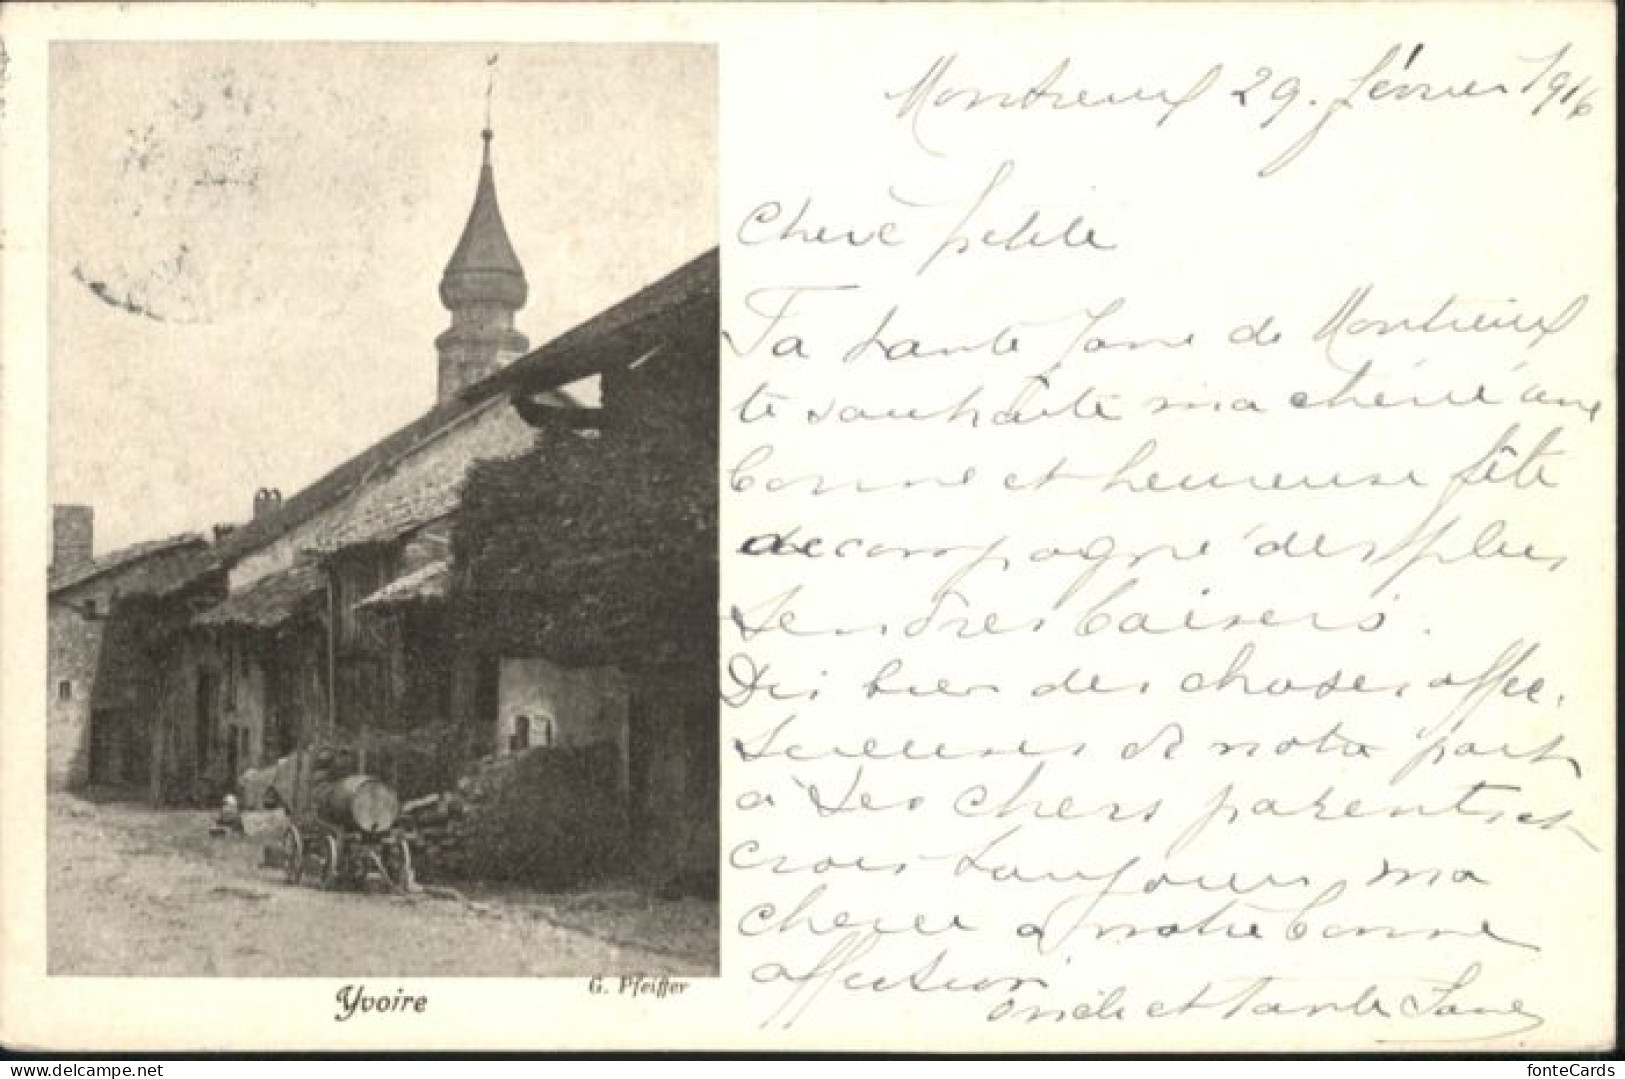 Montreux 29. février 1916
Chere petite
Ta tante Jane de Montreux
te souhaite ma chérie une
bonne et heureuse fête
accompagné des plus
tendres baisers.
Dis bien des choses affec.
tueuses de notre part
à tes chers parents et
crois toujours, ma
cherie a notre bonne
affection
oncle et tante Jane
Yvoire
G. Pfeiffer
www.delcampe.net
fonteCards